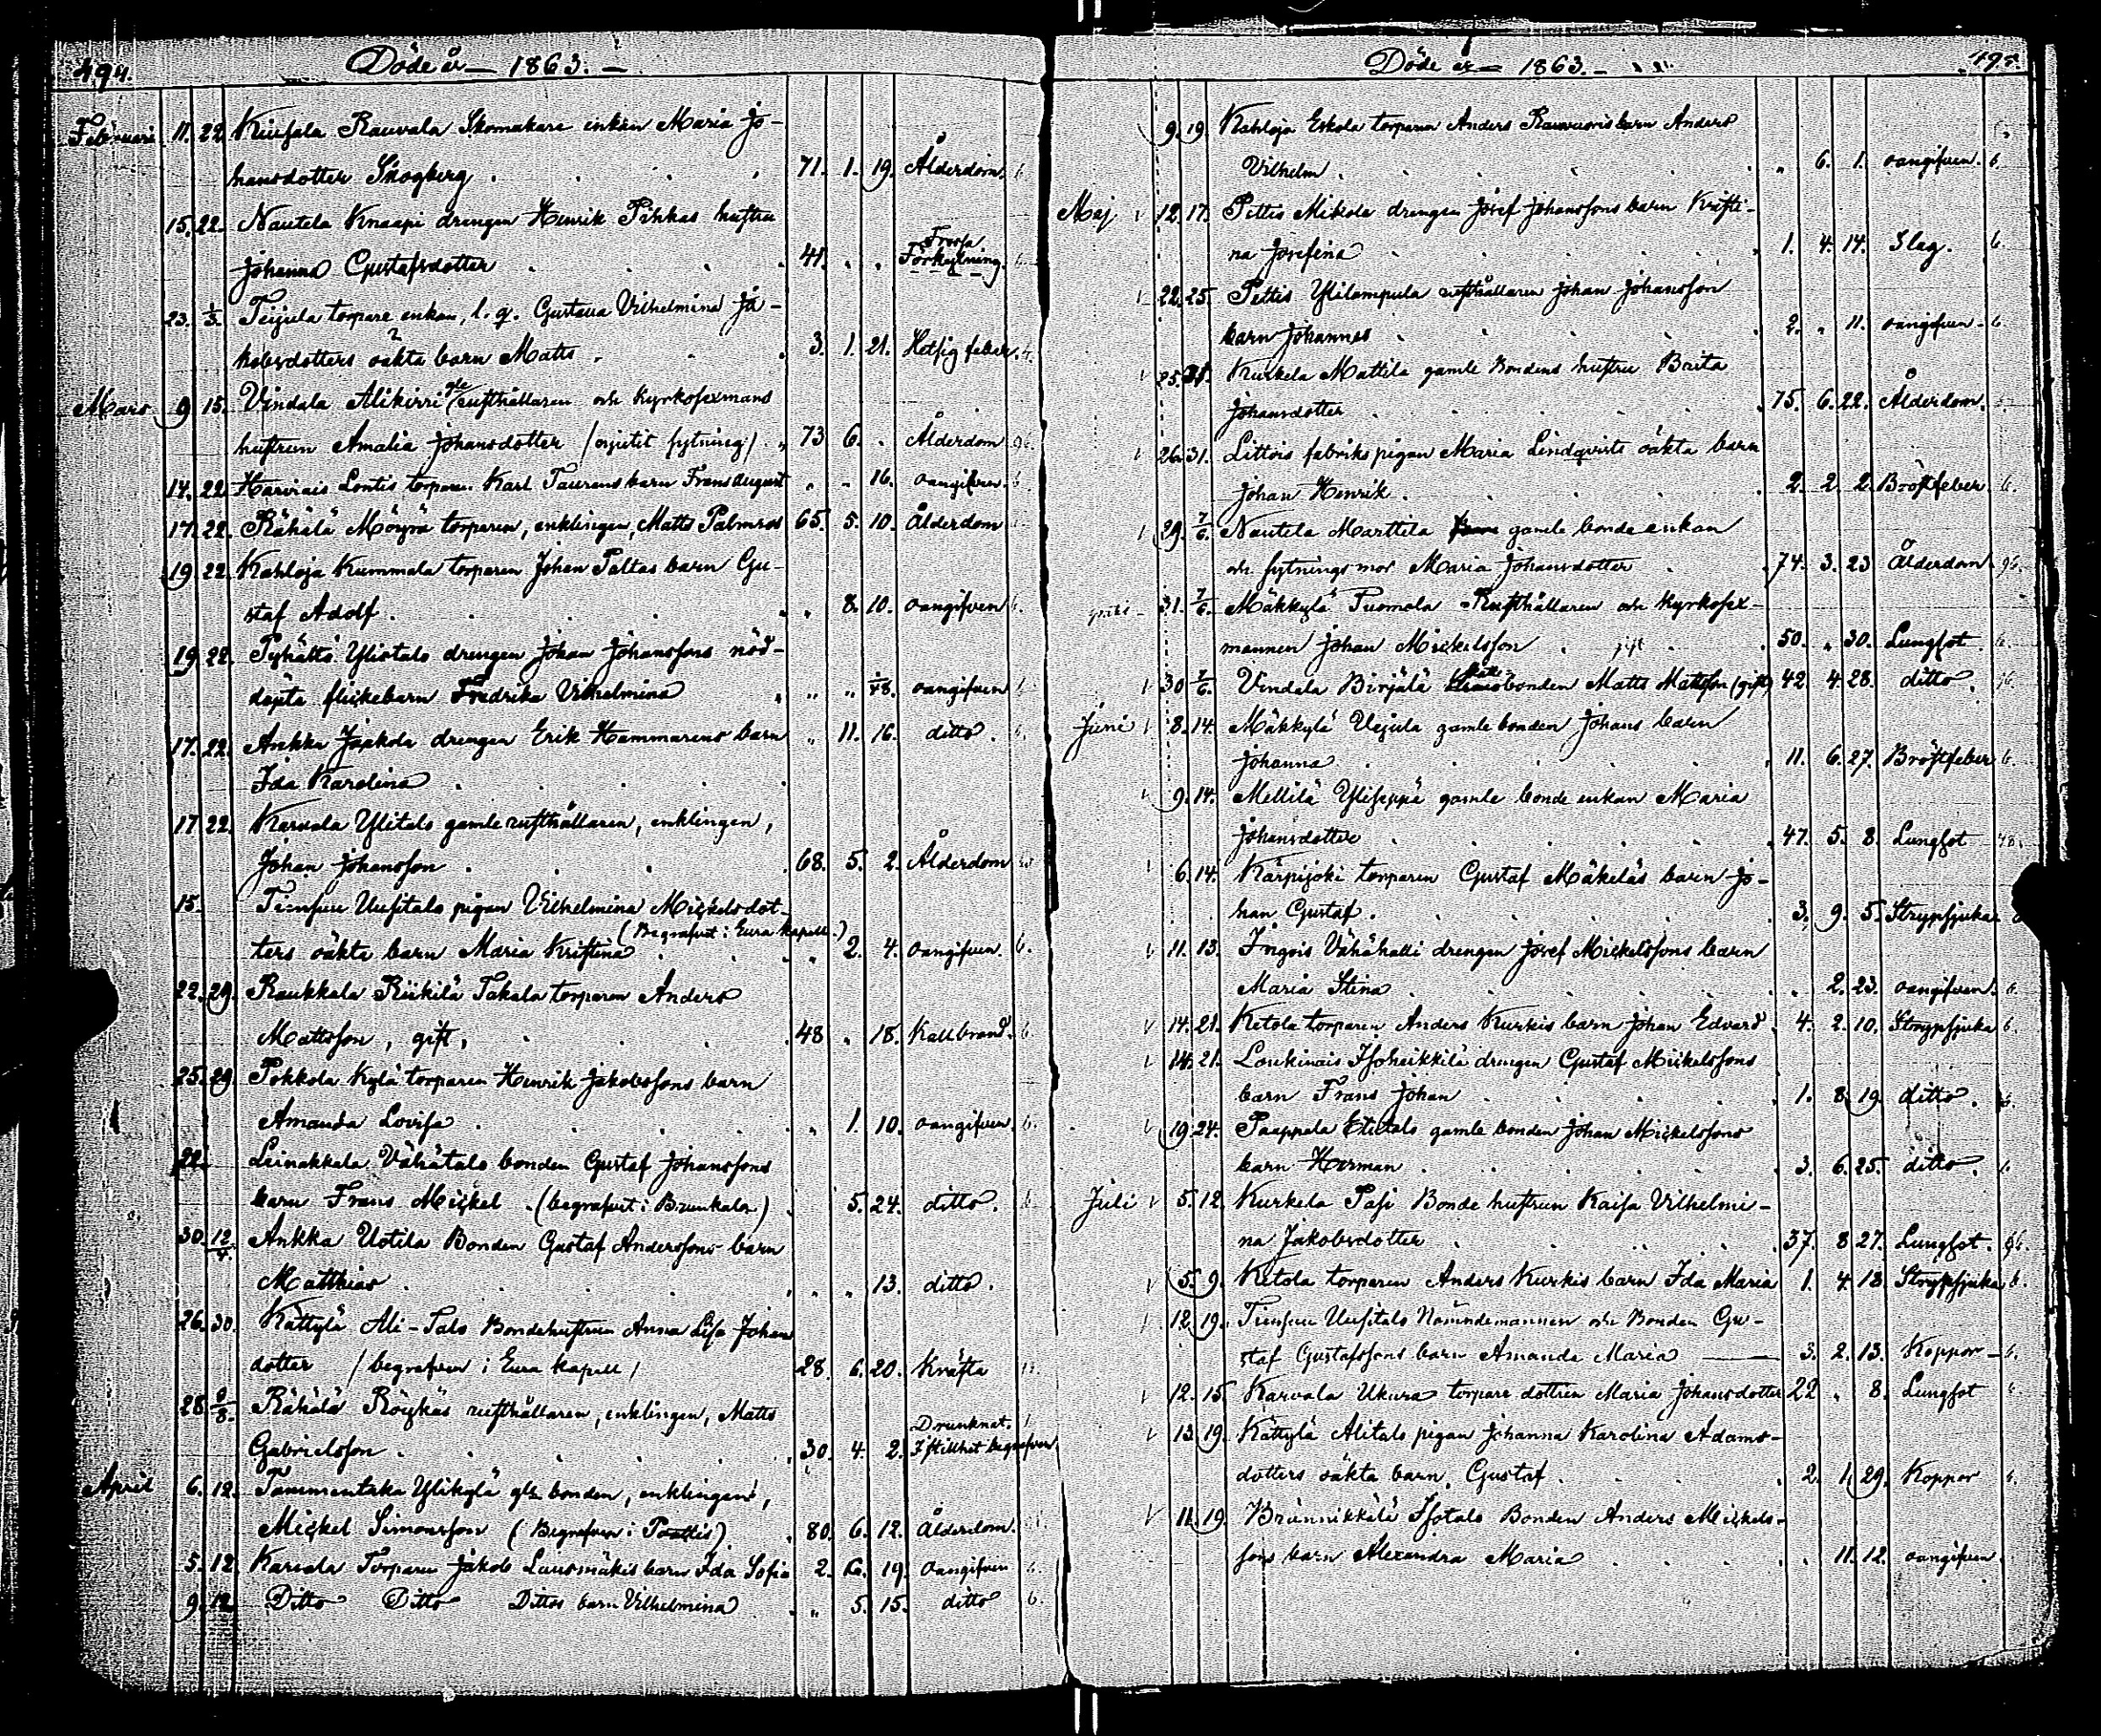 494.
Döde år — 1863. —
Februari 11. 22. Kiusala Rauvala Skomakare enkan Maria Jo-
hansdotter Skogberg . 71. 1. 19. Ålderdom.
15. 22. Nautela Knaapi drengen Henrik Pihkas hustru
Johanna Gustafsdotter . 41. Frossa Förkylning.
23. 1/3. Teijula torpare enkan, l. q. Gustava Vilhelmina Ja-
kobsdotters oäkta barn Matts . 3. 1. 21. Hetsig feber.
Mars 9. 15. Vindala Alikirri gle rusthållaren och kyrkosexmans
hustrun Amalia Johansdotter / sytning) 73 6. . Ålderdom
14. 22. Harvais Lontis torparen Karl Taurens barn Frans August „ „ 16. oangifven.
17. 22. Rähälä Möyrä torparen, enklingen, Matts Palmros 65. 5. 10. Ålderdom
19. 22. Kahloja Kummala torparen Johan Paltas barn Gu-
staf Adolf . „ 8. 10. oangifven
19. 22. Pyhältö Ylistalo drengen Johan Johanssons nöd-
döpta flickebarn Fredrika Vilhelmina „ „ 1/48. oangifven
17. 22. Ankka Jaakola drengen Erik Hammarens barn „ 11. 16. ditto.
Ida Karolina
17. 22. Karvala Ylitalo gamle rusthållaren, enklingen,
Johan Johansson . 68. 5. 2. Ålderdom
15. Tiensuu Uusitalo pigan Vilhelmina Mickelsdot-
(Begrafvit i Eura kapell.)
ters oäkta barn Maria Kristina . „ 2. 4. oangifven.
22. 29. Raukkala Riikilä Takala torparen Anders
Mattsson, gift, 48 „ 18. Kallbrand.
25. 29. Pokkola Kylä torparen Henrik Jakobssons barn
Amanda Lovisa . „ 1. 10. oangifven.
22. Leinakkala Vähätalo bonden Gustaf Johanssons
barn Frans Mickel . (begrafvit i Brunkala) 5. 24. ditto.
30. 12/4. Ankka Uotila Bonden Gustaf Anderssons barn
Matthias . „ „ 13. ditto.
26. 30. Kättylä Ali-Talo Bondehustrun Anna Lisa Johans
dotter / begrafven i Eura kapell / 28. 6. 20. Kräfta
28. Rähälä Röykäs rusthållaren, enklingen, Matts
Gabrielsson . 30. 4. 2. Drunknat. I stillhet begrafven.
April 6. 12. Tammentaka Ylikylä gle bonden, enklingen,
Mickel Simonsson (Begrafven i Pöttis) 80. 6. 12. Ålderdom.
5. 12. Karvala Torparen Jakob Lausmäkis barn Ida Sofia 2. 6. 19. Oangifven
9. 12. Ditto Ditto Dittos barn Vilhelmina „ 5. 15. ditto
Döde år — 1863. —
495.
9. 19. Kahloja Eskola torparen Anders barn Anders
Vilhelm . „ 6. 1. oangifven.
Maj 12. 17. Pettis Mikola drengen Josef Johanssons barn Kristi-
na Josefina . 1. 4. 14. Slag.
22. 25. Pettis Ylilampula rusthållaren Johan Johansson
barn Johannes . 2. „ 11. oangifven.
25. 31. Kurkela Mattila gamle Bondens hustru Brita
Johansdotter . 75. 6. 22. Ålderdom.
26. 31. Littois fabriks pigan Maria Lindqvists oäkta barn
Johan Henrik . 2. 2. 2. Bröstfeber.
29. 7/6. Nautela Marttila gamle bonde enkan
och sytningsmor Maria Johansdotter . 74. 3. 23 Ålderdom.
31. 7/6. Mäkkylä Tuomola Rusthållaren och Kyrkosex-
mannen Johan Mickelsson . gift . 50. „ 30. Lungsot.
30 7/6. Vindala Birjälä bonden Matts Matsson (gift) 42. 4. 28. ditto.
Juni 8. 14. Mäkkylä Uejula gamle bonden Johans barn
Johanna . 11. 6. 27. Bröstfeber
9. 14. Mellilä Yliseppä gamle bonde enkan Maria
Johansdotter . 47. 5. 8. Lungsot
6. 14. Kärpijoki torparen Gustaf Mäkeläs barn Jo-
han Gustaf . 3. 9. 5. Strypsjuka
11. 13. Ingois Vähähalli drengen Josef Mickelssons barn
Maria Stina . „ 2. 23. oangifven.
14. 21. Ketola torparen Anders Kurkis barn Johan Edvard 4. 2. 10. Strypsjuka
14. 21. Loukinais Isoheikkilä drengen Gustaf Mickelssons
barn Frans Johan . 1. 8. 19. ditto.
19. 24. Paappala Etutalo gamle bonden Johan Mickelssons
barn Herman . 3. 6. 25. ditto.
Juli 5. 12. Kurkela Pasi Bonde hustrun Kaisa Vilhelmi-
na Jakobsdotter . 37. 8 27. Lungsot.
5. 9. Ketola torparen Anders Kurkis barn Ida Maria 1. 4. 13. Strypsjuka
12. 19. Tiensuu Uusitalo Nämndemannen och Bonden Gu-
staf Gustafssons barn Amanda Maria — 3. 2. 13. Koppor
12. 15. Karvala Ukura torpare dottren Maria Johansdotter 22 „ 8. Lungsot
13. 19. Kättylä Alitalo pigan Johanna Karolina Adams-
dotters oäkta barn Gustaf . 2. 1. 29. Koppor
11. 19. Brunnikkälä Isotalo Bonden Anders Mickels-
sons barn Alexandra Maria . „ 11. 12. oangifven